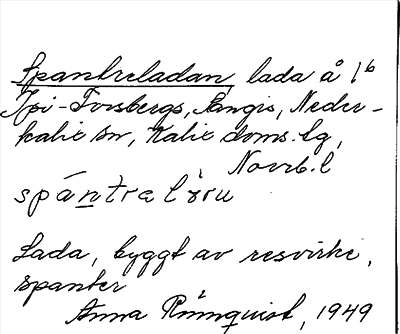 Spantreladan, lada å 1b
Ypi-Forsbergs, Sangis, Neder-
kalix sn, Kalix doms. lg,
Norrb. l
Lada, byggt av resvirke,
spanter
Anna Rönnquist, 1949